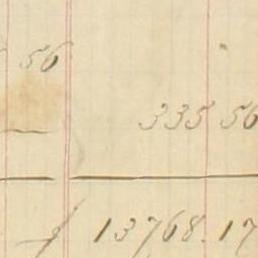 56
335 56
13768.17